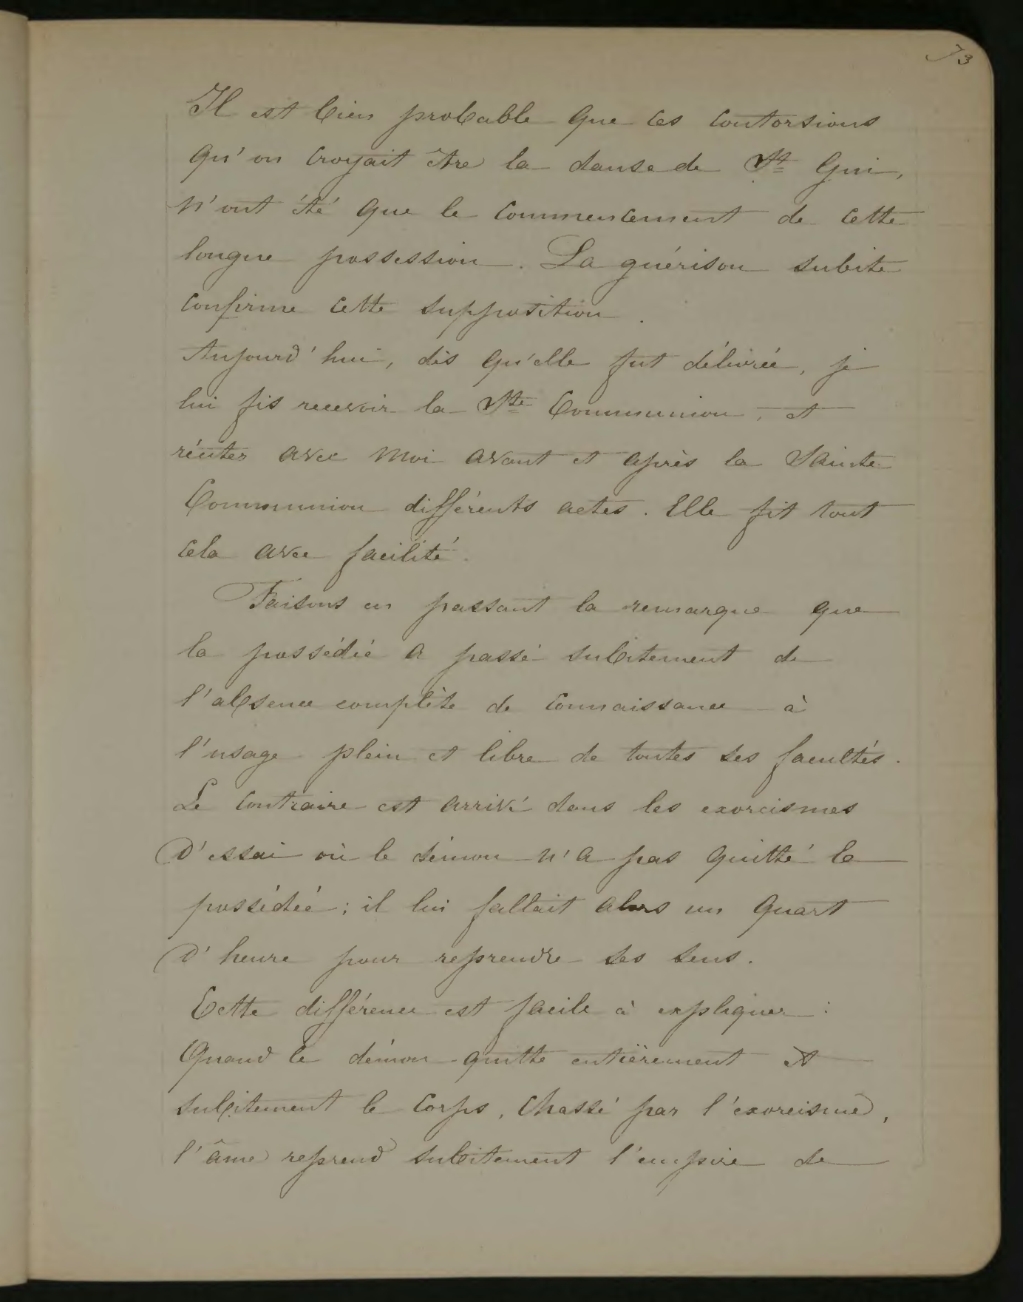 73
Il est bien probable que ces contorsions
qu'on croyait être la danse de St Gui,
n'ont été que le commencement de cette
longue possession. La guérison subite
confirme cette supposition.
Aujourd'hui, dès qu'elle fut délivrée, je
lui fis recevoir la Ste Communion, et
réciter avec moi avant et après la Sainte
Communion différents actes. Elle fit tout
cela avec facilité.
Faisons en passant la remarque que
la possédée a passé subitement de
l'absence complète de connaissance à
l'usage plein et libre de toutes ses facultés.
Le contraire est arrivé dans les exorcismes
d'essai où le démon n'a pas quitté la
possédée; il lui fallait alors un quart
d'heure pour reprendre ses sens.
Cette différence est facile à expliquer :
Quand le démon quitte entièrement et
subitement le corps, chassé par l'exorcisme,
l'âme reprend subitement l'empire de